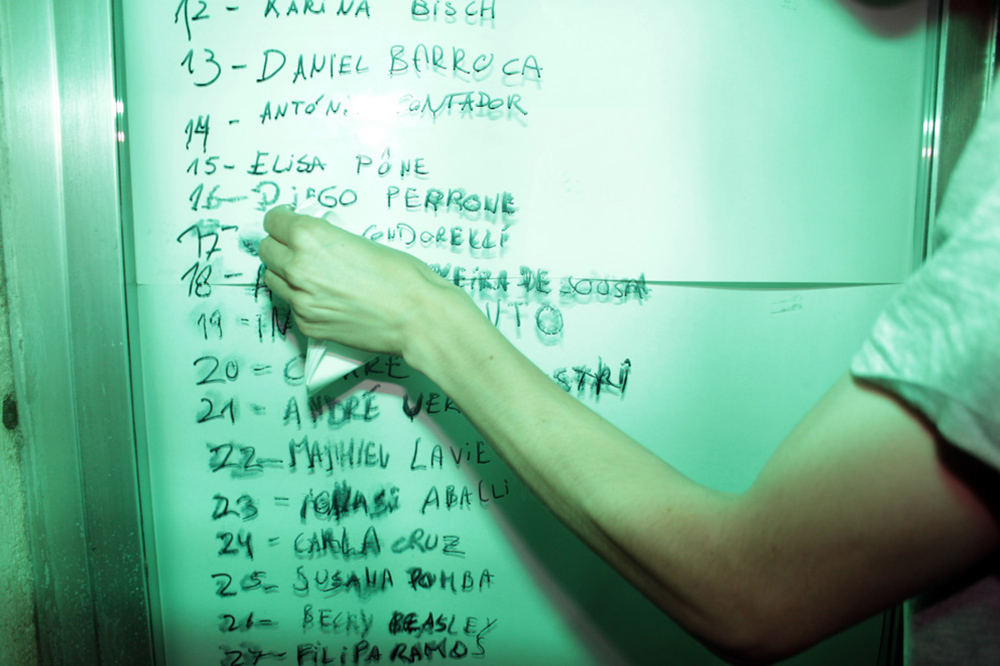 12 - KARINA BISCH
13 - DANIEL BARROCA
14 - ANTÓNI CONTADOR
15 - ELISA PÔNE
16 - DIEGO PERRONE
17 - CONDORELLI
18 - DE SOUSA
19 -
20 -
21 - ANDRÉ
22 - MATHIEU LAVIE
23 - IGNASI ABALLI
24 - CARLA CRUZ
25 - SUSANA POMBA
26 - BECKY BEASLEY
27 - FILIPA RAMOS